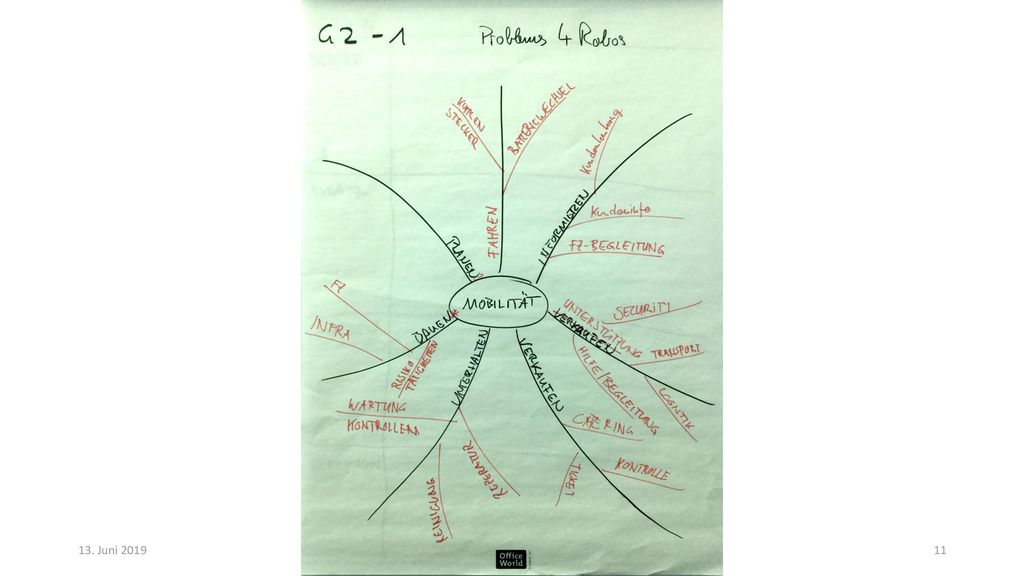 G2 - 1
Problems 4 Robos
KUPPELN
STECKER
BATTERIEWECHSEL
Kundenlenkung
FAHREN
INFORMIEREN
Kundeninfo
FZ-BEGLEITUNG
PLANEN
MOBILITÄT
FZ
INFRA
BAUEN
RISIKO
TÄTIGKEITEN
UNTERSTÜTZUNG
SECURITY
TRANSPORT
LOGISTIK
HILFE/BEGLEITUNG
UNTERHALTEN
WARTUNG
KONTROLLEN
REPERATUR
REINIGUNG
VERKAUFEN
CATERING
TICKET
KONTROLLE
Office
World
13. Juni 2019
11